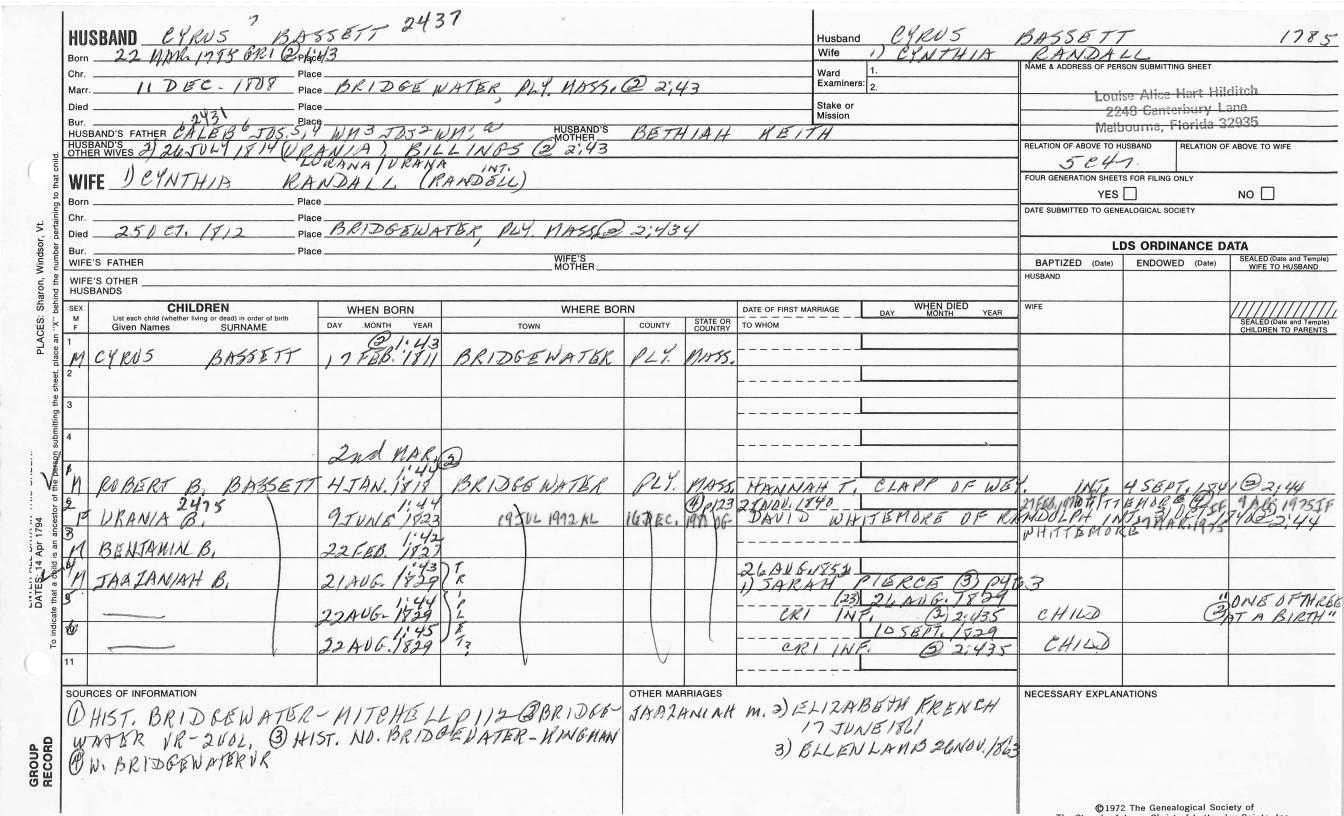 HUSBAND CYRUS ? BASSETT 2437
Born 22 MAR. 1785 CRI ② Place 1:43
Chr. Place
Marr. 11 DEC. 1808 Place BRIDGEWATER, PLY. MASS. ② 2:43
Died Place
Bur. 2431 Place
HUSBAND'S FATHER CALEB 6 JOS. 5,4 WM 3 JOS 2 WM. HUSBAND'S MOTHER BETHIAH KEITH
HUSBAND'S OTHER WIVES 2) 26 JULY 1814 (URANIA) BILLINGS ② 2:43
LURANA/URANA INT.
WIFE 1) CYNTHIA RANDALL (RANDELL)
Born Place
Chr. Place
Died 25 OCT. 1812 Place BRIDGEWATER, PLY. MASS. ② 2:434
Bur. Place
WIFE'S FATHER WIFE'S MOTHER
WIFE'S OTHER HUSBANDS
Husband CYRUS BASSETT 1785
Wife 1) CYNTHIA RANDALL
Ward Examiners: 1. 2.
Stake or Mission
NAME & ADDRESS OF PERSON SUBMITTING SHEET
Louise Alice Hart Hilditch
2248 Canterbury Lane
Melbourne, Florida 32935
RELATION OF ABOVE TO HUSBAND RELATION OF ABOVE TO WIFE
5C4r.
FOUR GENERATION SHEETS FOR FILING ONLY
YES NO
DATE SUBMITTED TO GENEALOGICAL SOCIETY
LDS ORDINANCE DATA
BAPTIZED (Date) ENDOWED (Date) SEALED (Date and Temple) WIFE TO HUSBAND
HUSBAND
WIFE
SEALED (Date and Temple) CHILDREN TO PARENTS
SEX M F CHILDREN WHEN BORN WHERE BORN DATE OF FIRST MARRIAGE WHEN DIED
List each child (whether living or dead) in order of birth
Given Names SURNAME DAY MONTH YEAR TOWN COUNTY STATE OR COUNTRY TO WHOM DAY MONTH YEAR
1 ② 1:43
M CYRUS BASSETT 17 FEB. 1811 BRIDGEWATER PLY. MASS.
2
3
4
2nd MAR. ②
1 1:44
M ROBERT B. BASSETT 4 JAN. 1817 BRIDGEWATER PLY. MASS. HANNAH T. CLAPP OF WEY. INT. 4 SEPT. 1841 ② 2:44
2 2475 1:44 ④ p123 22 NOV. 1840 9 AUG 1975 IF
F URANIA B. 9 JUNE 1823 19 JUL 1992 AL 16 DEC. DAVID WHITEMORE OF RANDOLPH INT. ② 2:44
3 1:42 WHITTEMORE 27 MAR. 1975
M BENJAMIN B. 22 FEB. 1827
4 1:43 26 AUG. 1852
M JAAZANIAH B. 21 AUG. 1829 TRIPLETS 1) SARAH PIERCE ③ p463
5 1:44 (23) 26 AUG. 1829 "ONE OF THREE
22 AUG. 1829 CRI INF. ② 2:435 CHILD ② AT A BIRTH"
6 1:45 10 SEPT. 1829
22 AUG. 1829 CRI INF. ② 2:435 CHILD
11
SOURCES OF INFORMATION
① HIST. BRIDGEWATER-MITCHELL P112 ② BRIDGE-
WATER VR-2VOL. ③ HIST. NO. BRIDGEWATER-KINGMAN
④ W. BRIDGEWATER VR
OTHER MARRIAGES
JAAZANIAH m. 2) ELIZABETH FRENCH
17 JUNE 1861
3) ELLEN LAMB 26 NOV. 1863
NECESSARY EXPLANATIONS
©1972 The Genealogical Society of
PLACES: Sharon, Windsor, Vt.
DATES: 14 Apr 1794
To indicate that a child is an ancestor of the person submitting the sheet, place an "X" behind the number pertaining to that child
GROUP RECORD